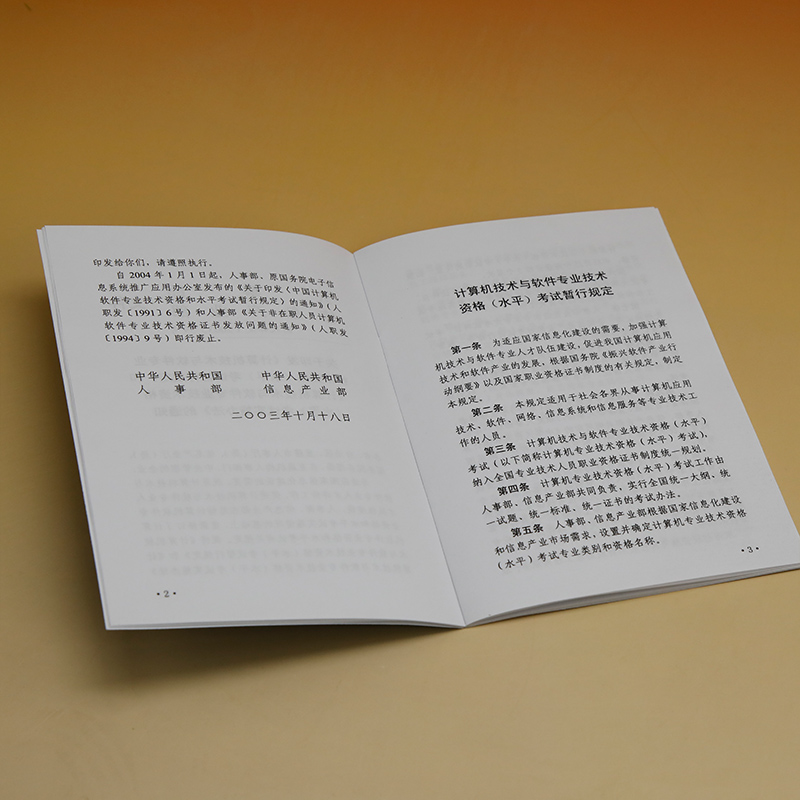 印发给你们，请遵照执行。
自 2004 年 1 月 1 日起，人事部、原国务院电子信
息系统推广应用办公室发布的《关于印发〈中国计算机
软件专业技术资格和水平考试暂行规定〉的通知》（人
职发〔1991〕6 号）和人事部《关于非在职人员计算机
软件专业技术资格证书发放问题的通知》（人职发
〔1994〕9 号）即行废止。
中华人民共和国 中华人民共和国
人 事 部 信息产业部
二〇〇三年十月十八日
·2·
计算机技术与软件专业技术
资格（水平）考试暂行规定
第一条 为适应国家信息化建设的需要，加强计算
机技术与软件专业人才队伍建设，促进我国计算机应用
技术和软件产业的发展，根据国务院《振兴软件产业行
动纲要》以及国家职业资格证书制度的有关规定，制定
本规定。
第二条 本规定适用于社会各界从事计算机应用
技术、软件、网络、信息系统和信息服务等专业技术工
作的人员。
第三条 计算机技术与软件专业技术资格（水平）
考试（以下简称计算机专业技术资格（水平）考试），
纳入全国专业技术人员职业资格证书制度统一规划。
第四条 计算机专业技术资格（水平）考试工作由
人事部、信息产业部共同负责，实行全国统一大纲、统
一试题、统一标准、统一证书的考试办法。
第五条 人事部、信息产业部根据国家信息化建设
和信息产业市场需求，设置并确定计算机专业技术资格
（水平）考试专业类别和资格名称。
·3·